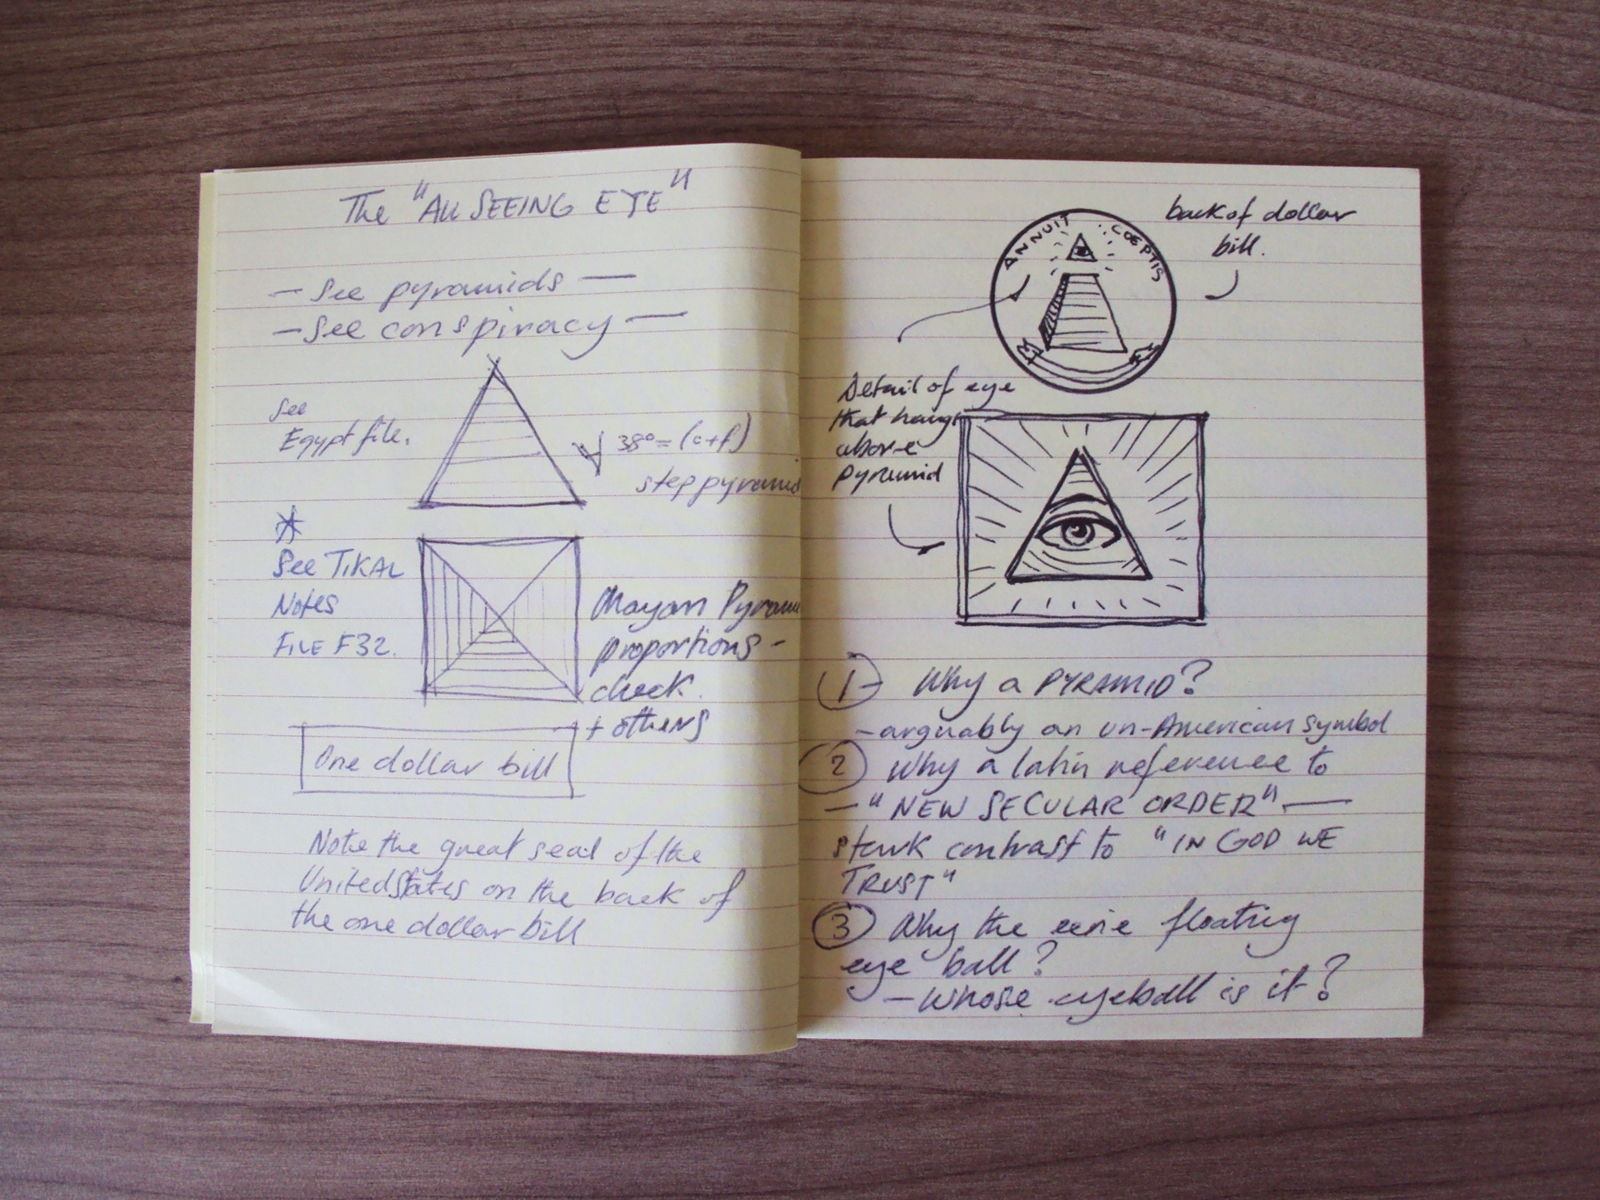 The "All SEEING EYE"
— See pyramids —
— See conspiracy —
See
Egypt file.
38° = (c+f)
step pyramid
See TIKAL
Notes
FILE F32.
Mayan Pyram
proportions -
check.
+ others
One dollar bill
Note the great seal of the
United States on the back of
the one dollar bill
back of dollar
bill.
ANNUIT COEPTIS
Detail of eye
that hangs
above
pyramid
1 Why a PYRAMID?
- arguably an un-American symbol
2 Why a latin reference to
— "NEW SECULAR ORDER" —
stark contrast to "IN GOD WE
TRUST"
3 Why the eerie floating
eye ball?
— whose eyeball is it?